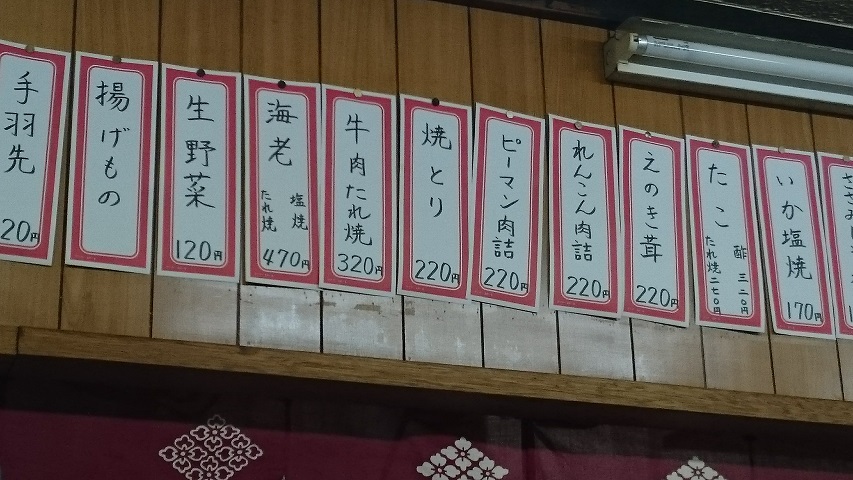 手羽先
20円
揚げもの
生野菜
120円
海老
塩焼
たれ焼
470円
牛肉たれ焼
320円
焼とり
220円
ピーマン肉詰
220円
れんこん肉詰
220円
えのき茸
220円
たこ
酢 三二〇円
たれ焼 二七〇円
いか塩焼
170円